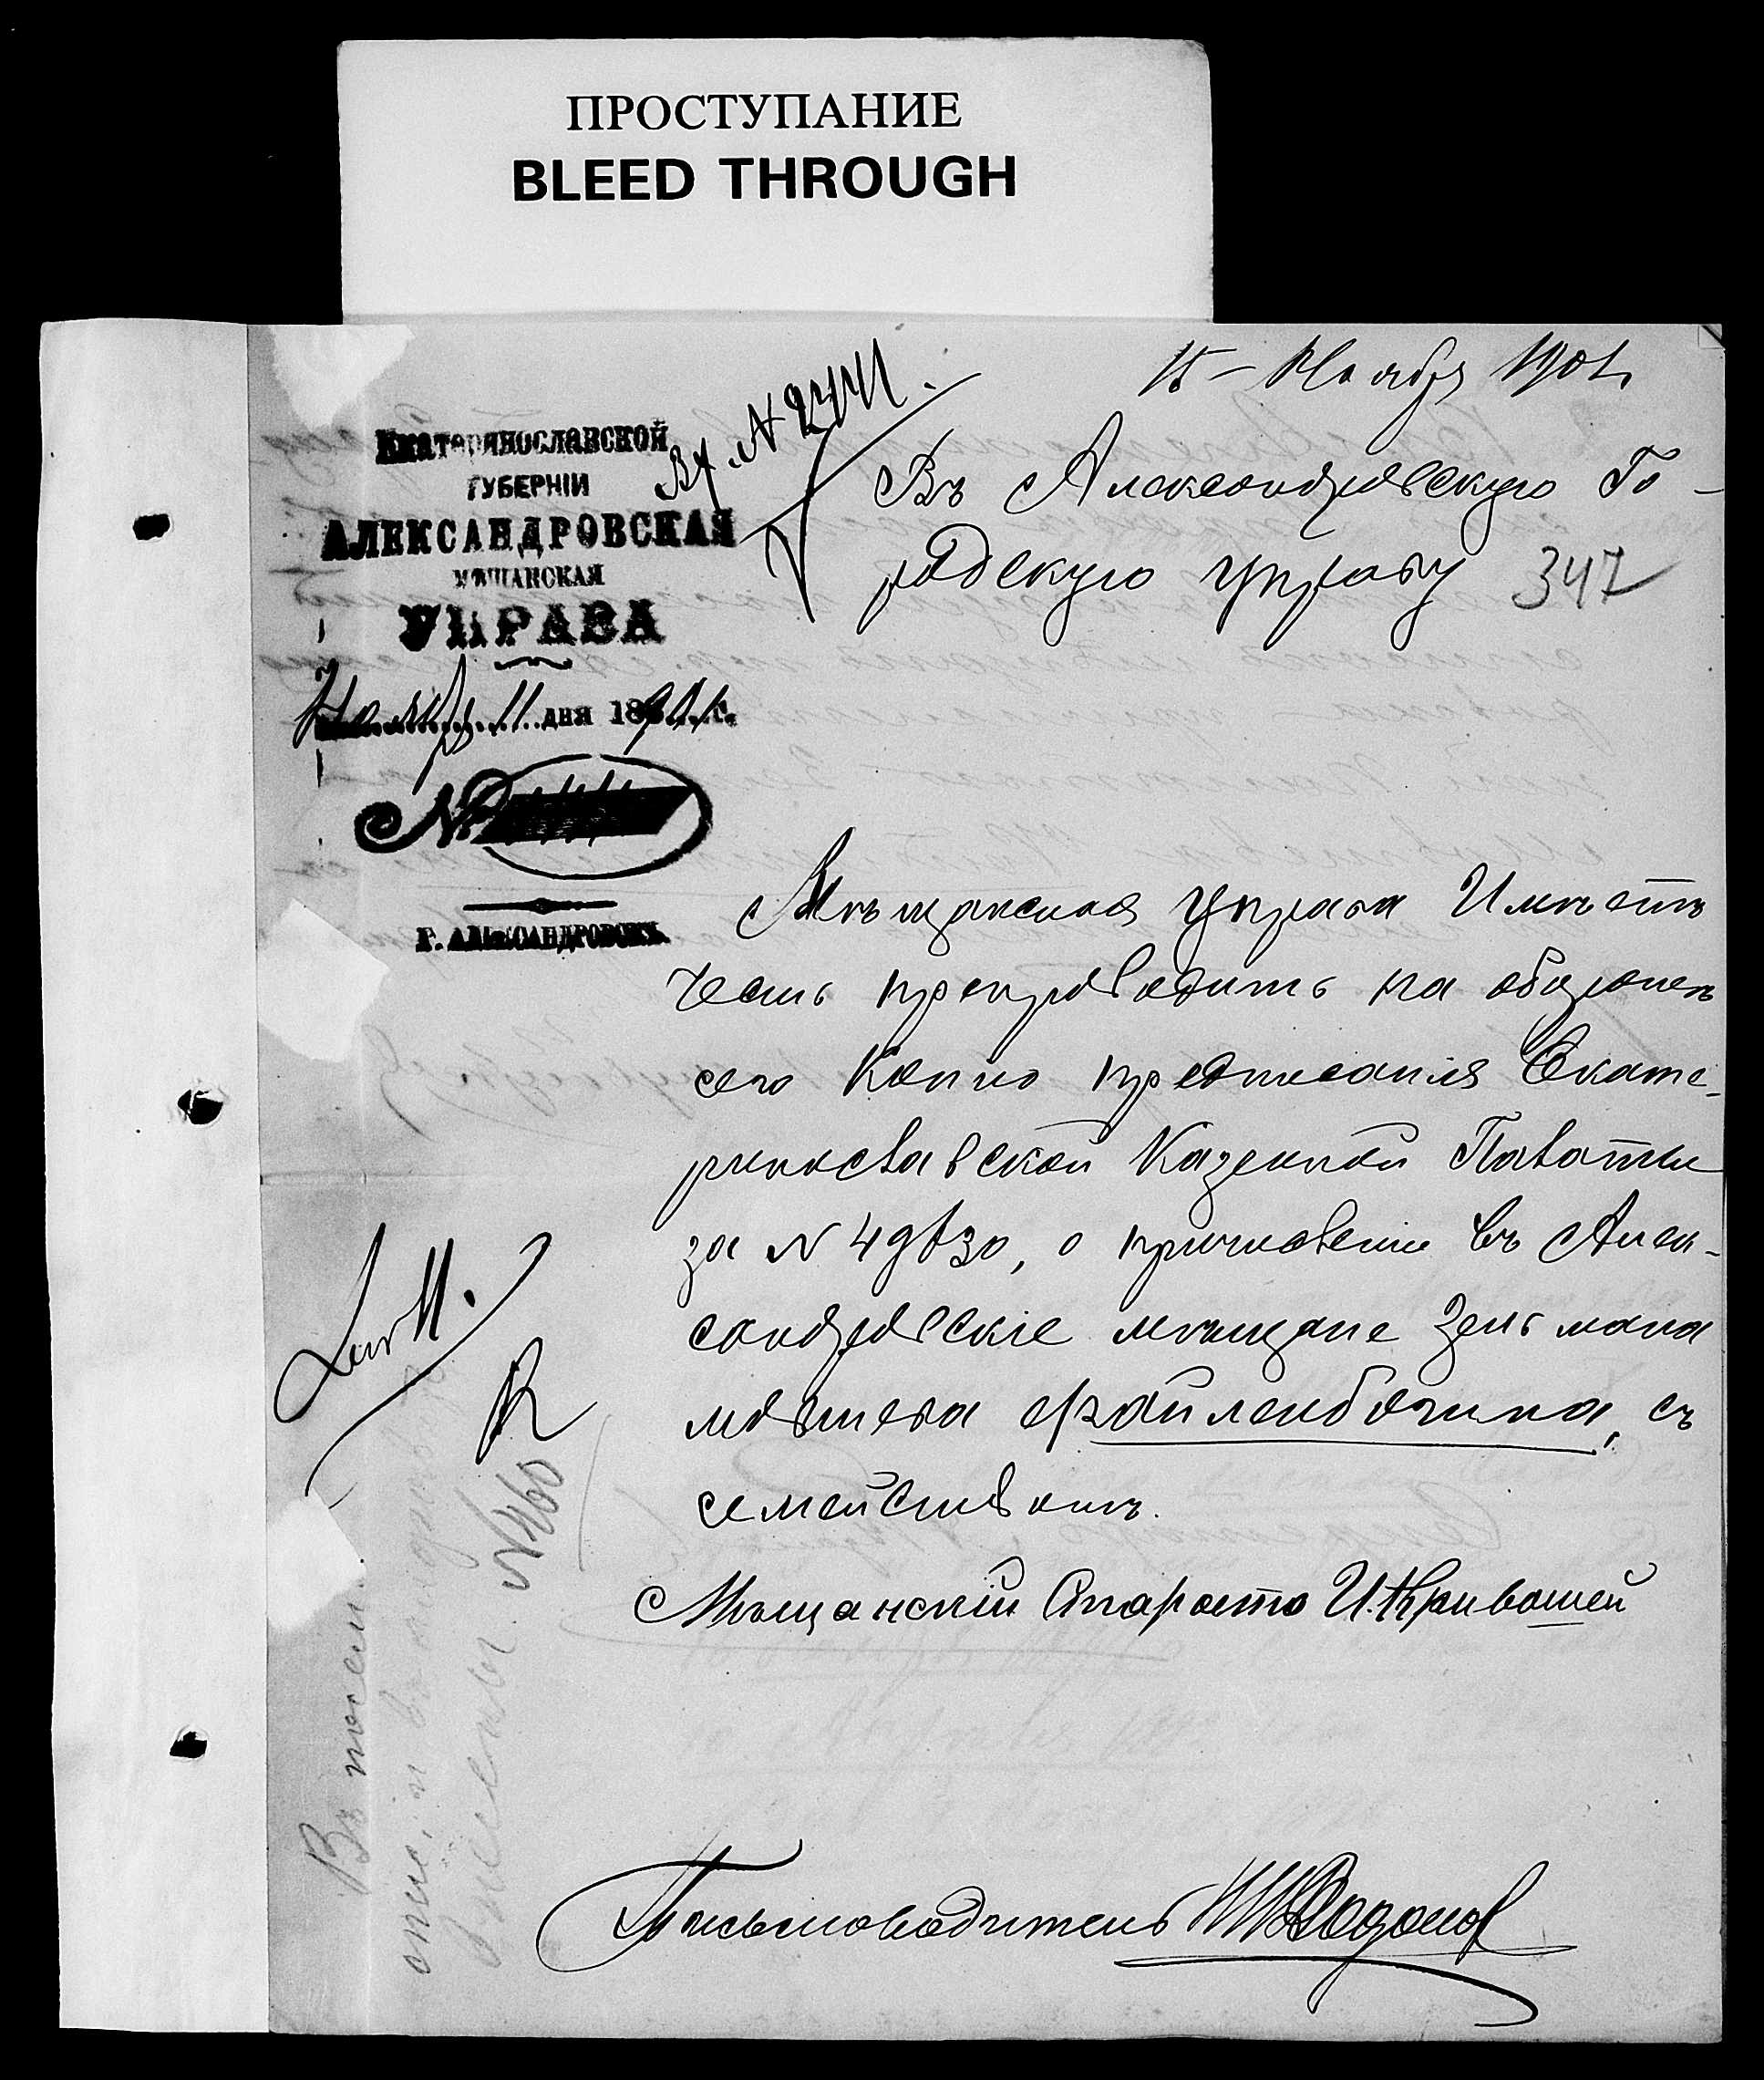 ПРОСТУПАНИЕ
BLEED THROUGH
15 Ноября 1901
Вх. №
Екатеринославской
ГУБЕРНІИ
АЛЕКСАНДРОВСКАЯ
МѢЩАНСКАЯ
УПРАВА
Ноября 11 дня 1901 г.
№
Г. АЛЕКСАНДРОВСКЪ.
Въ Александровскую Го-
родскую управу
347
Мѣщанская управа Имѣетъ
честь препроводить на оборотѣ
сего Копию предписанія Екате-
ринославской Казенной Палаты
за № 49830, о причисленіи въ Алек-
сандровские мѣщане Зельмана
мовшева Файленбогина, съ
семействомъ.
Мѣщанскій Староста И. Кривошей
Письмоводитель
№ 460
Въ посем.